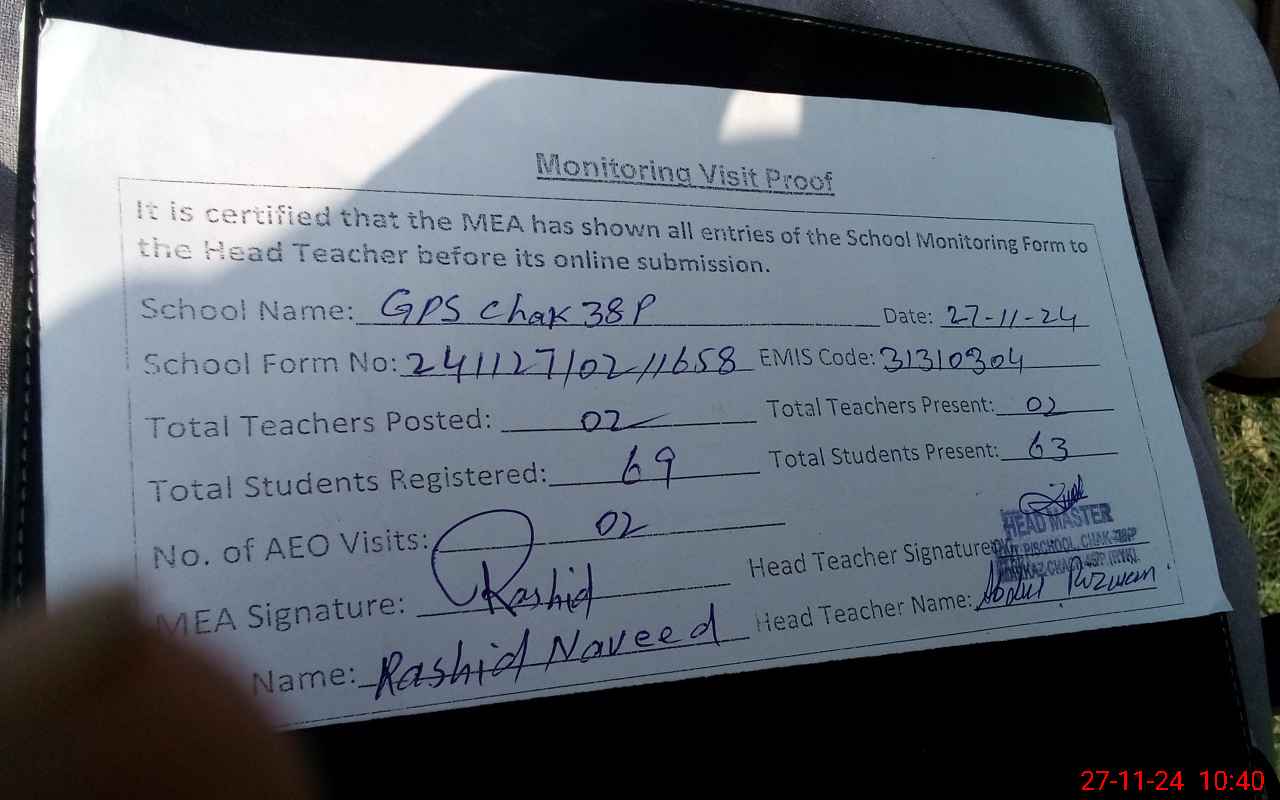 Monitoring Visit Proof
It is certified that the MEA has shown all entries of the School Monitoring Form to
the Head Teacher before its online submission.
School Name: GPS Chak 38P Date: 27-11-24
School Form No: 241127/02/11658 EMIS Code: 31310304
Total Teachers Posted: 02 Total Teachers Present: 02
Total Students Registered: 69 Total Students Present: 63
No. of AEO Visits: 02
HEAD MASTER
Head Teacher Signature
P/SCHOOL, CHAK 38P
MEA Signature: Rashid
Head Teacher Name: Abdul Rizwan
Name: Rashid Naveed
27-11-24 10:40